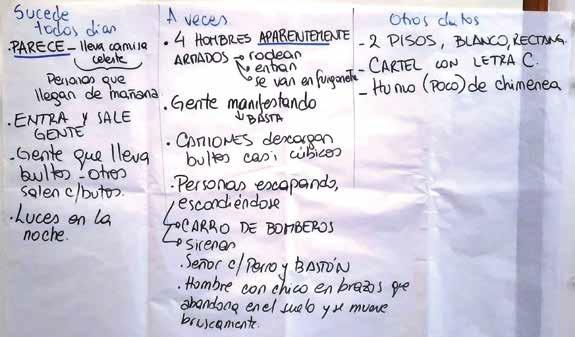 Sucede
todos dias
• PARECE - lleva camisa
celeste
Personas que
llegan de mañana
• ENTRA Y SALE
GENTE
- Gente que lleva
bultos - otros
salen c/butos.
• Luces en la
noche.
A veces
• 4 HOMBRES APARENTEMENTE
ARMADOS → rodean
→ entran
→ se van en furgoneta
• Gente manifestando
↳ BASTA
• CAMIONES descargan
bultos casi cúbicos
• Personas escapando,
escondiéndose
→ CARRO DE BOMBEROS
→ Sirenas
• Señor c/Perro y BASTÓN
• Hombre con chico en brazos que
abandona en el suelo y se mueve
bruscamente.
Otros datos
- 2 PISOS, BLANCO, RECTANG.
- CARTEL CON LETRA C.
- Humo (POCO) de chimenea